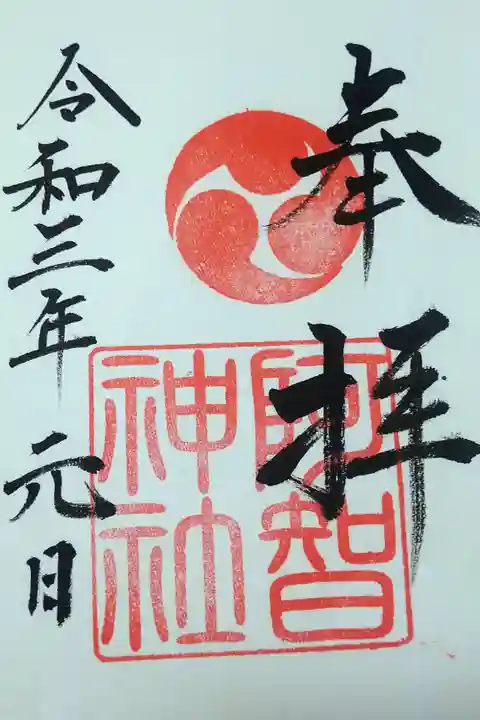 奉拝
阿智
神社
令和三年 元日